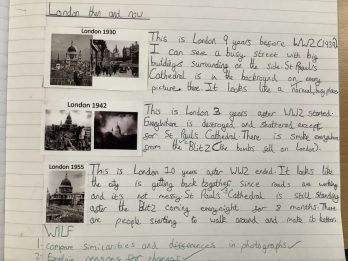 London then and now
London 1930
This is London 9 years before WW2 (1939)
I can see a busy street with big
buildings surrounding on the side. St Paul's
Cathedral is in the background on every
picture. It looks like a normal, busy place
London 1942
This is London 3 years after WW2 started.
Everywhere is destroyed and shattered except
for St Paul's Cathedral. There is smoke everywhere
from the Blitz (the bombs fell on London).
London 1955
This is London 10 years after WW2 ended. It looks like
the city is getting back together since roads are working
and it's not messy. St Paul's Cathedral is still standing
after the Blitz coming everynight for 8 months. There
are people starting to walk around and make it better.
WILF
1. compare similarities and differences in photographs
2. Explain reasons for changes